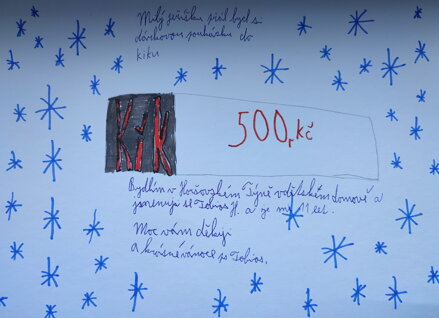 Milý ježíšku přál bych si
dárkovou poukázku do
kiku
KiK
500,kč
Bydlím v Horšovském Týně v dětském domově a
jmenuji se Tobias H. a je mi 11 let.
Moc vám děkuji
a krásné vánoce so Tobias.